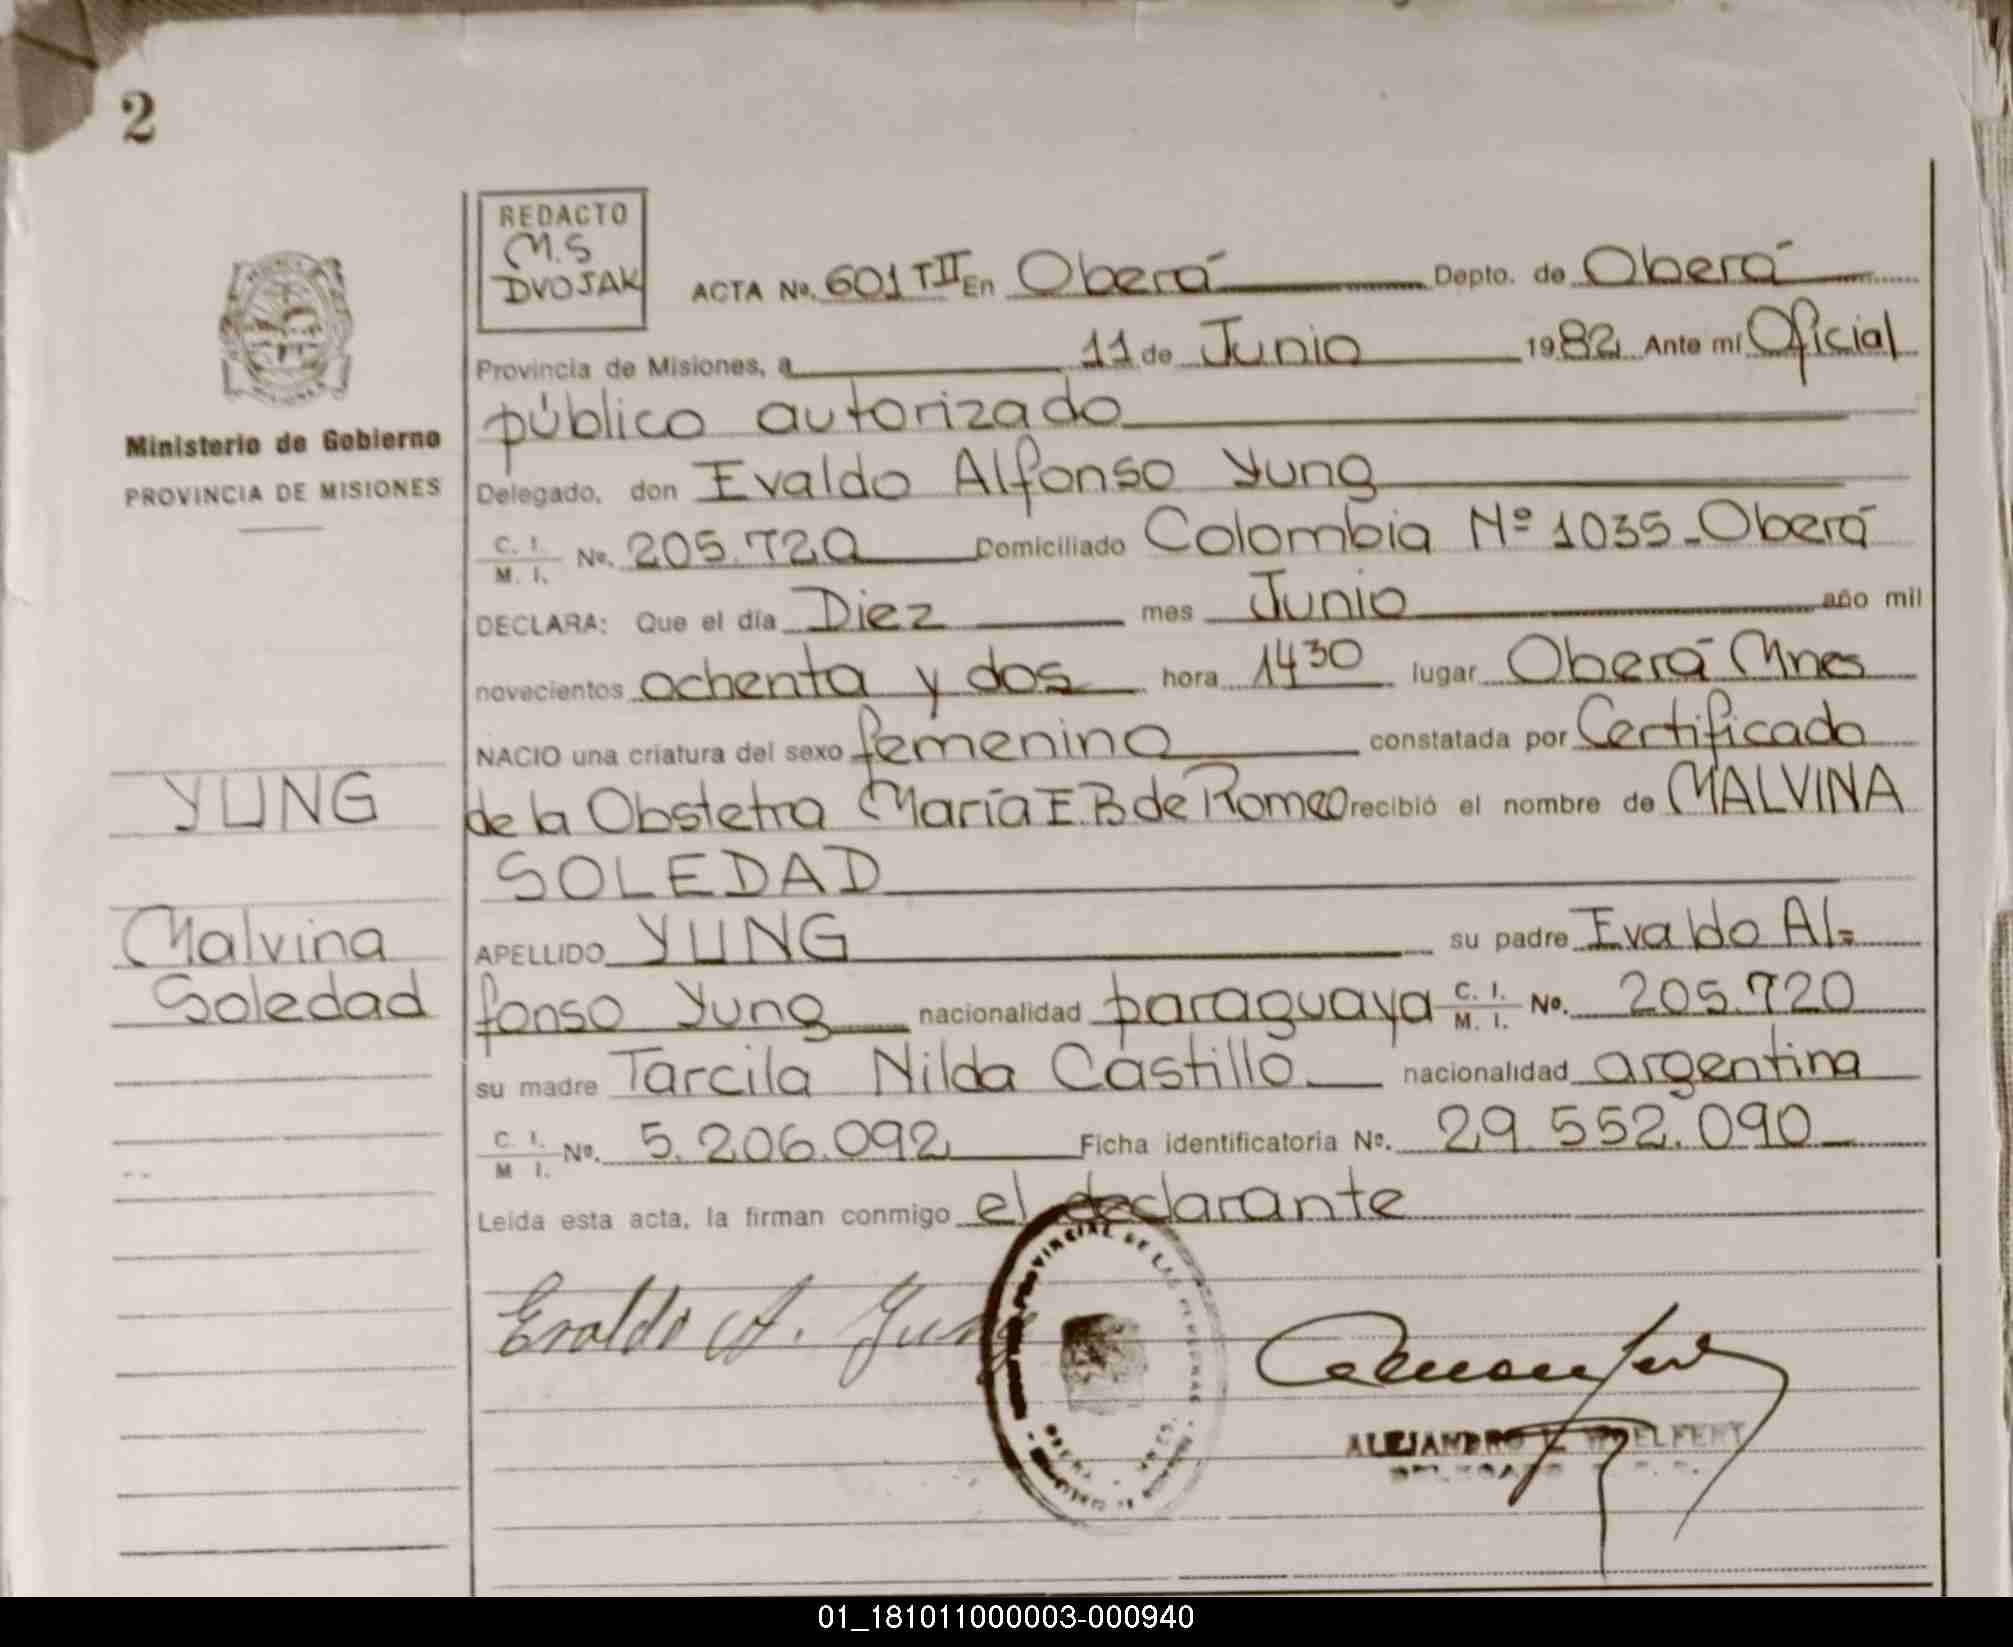 2
REDACTO
M.S
DVOJAK
ACTA No. 601 TII En Oberá Depto. de Oberá
Provincia de Misiones, a 11 de Junio 1982 Ante mí Oficial
público autorizado
Ministerio de Gobierno
PROVINCIA DE MISIONES
Delegado, don Evaldo Alfonso Yung
C. I. M. I. No. 205.720 Domiciliado Colombia Nº 1035-Oberá
DECLARA: Que el día Diez mes Junio año mil
novecientos ochenta y dos hora 14 30 lugar Oberá Mnes
NACIO una criatura del sexo femenino constatada por Certificado
YUNG
de la Obstetra María E.B de Romeo recibió el nombre de MALVINA
SOLEDAD
Malvina
Soledad
APELLIDO YUNG su padre Evaldo Al=
fonso Yung nacionalidad paraguaya C. I. M. I. No. 205.720
su madre Tarcila Nilda Castillo nacionalidad argentina
C. I. M I. No. 5.206.092 Ficha identificatoria No. 29 552.090
Leída esta acta, la firman conmigo el declarante
Evaldo A. Yung
PROVINCIAL DE LAS PERSONAS
ALEJANDRO WOELFERT
DELEGADO
01_181011000003-000940